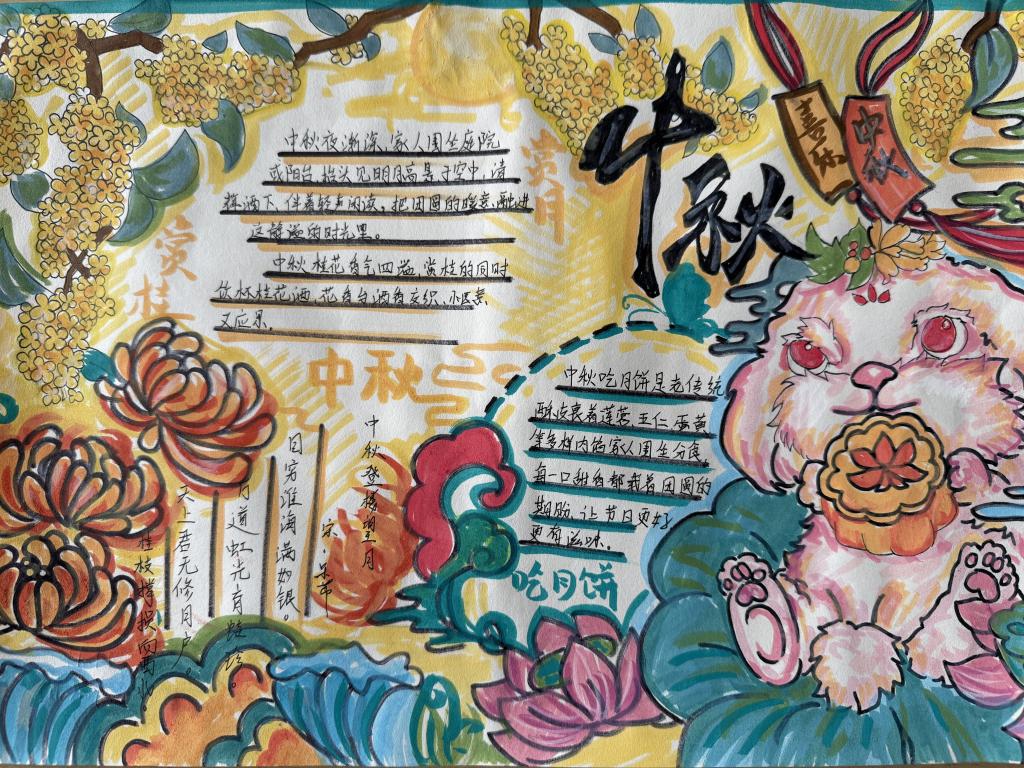 中秋
喜乐
中秋
赏月
中秋夜渐深,家人围坐庭院
或阳台,抬头见明月高悬于空中,清
辉洒下,伴着轻声闲谈,把团圆的暖意,融进
这静谧的时光里。
赏桂
中秋桂花香气四溢,赏桂的同时
饮杯桂花酒,花香与酒香交织,
又应景。
中秋
中秋登楼望月
宋·米芾
目穷淮海满如银。
道虹光育蚌珍。
天上若无修月户。
桂枝撑损向西
中秋吃月饼是老传统
酥皮裹着莲蓉 五仁 蛋黄
等多样内馅家人围坐分食
每一口甜香都载着团圆的
期盼,让节日更好
更有滋味。
吃月饼